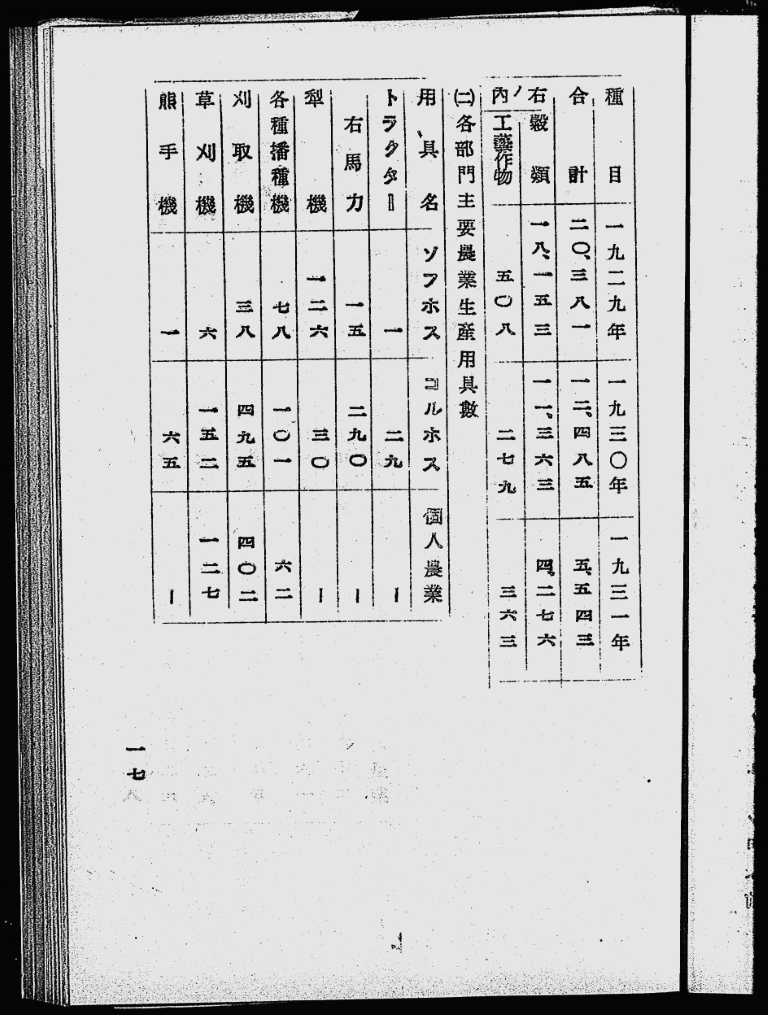 種目 一九二九年 一九三〇年 一九三一年
合計 二〇、三八一 一二、四八五 五、五四三
右ノ内 穀類 一八、一五三 一一、三六三 四、二七六
工藝作物 五〇八 二七九 三六三
㈡各部門主要農業生産用具數
用具名 ソフホス コルホス 個人農業
トラクター 一 二九 ー
右馬力 一五 二九〇 ー
犁機 一二六 三〇 ー
各種播種機 七八 一〇一 六二
刈取機 三八 四九五 四〇二
草刈機 六 一五二 一二七
熊手機 一 六五 ー
一七